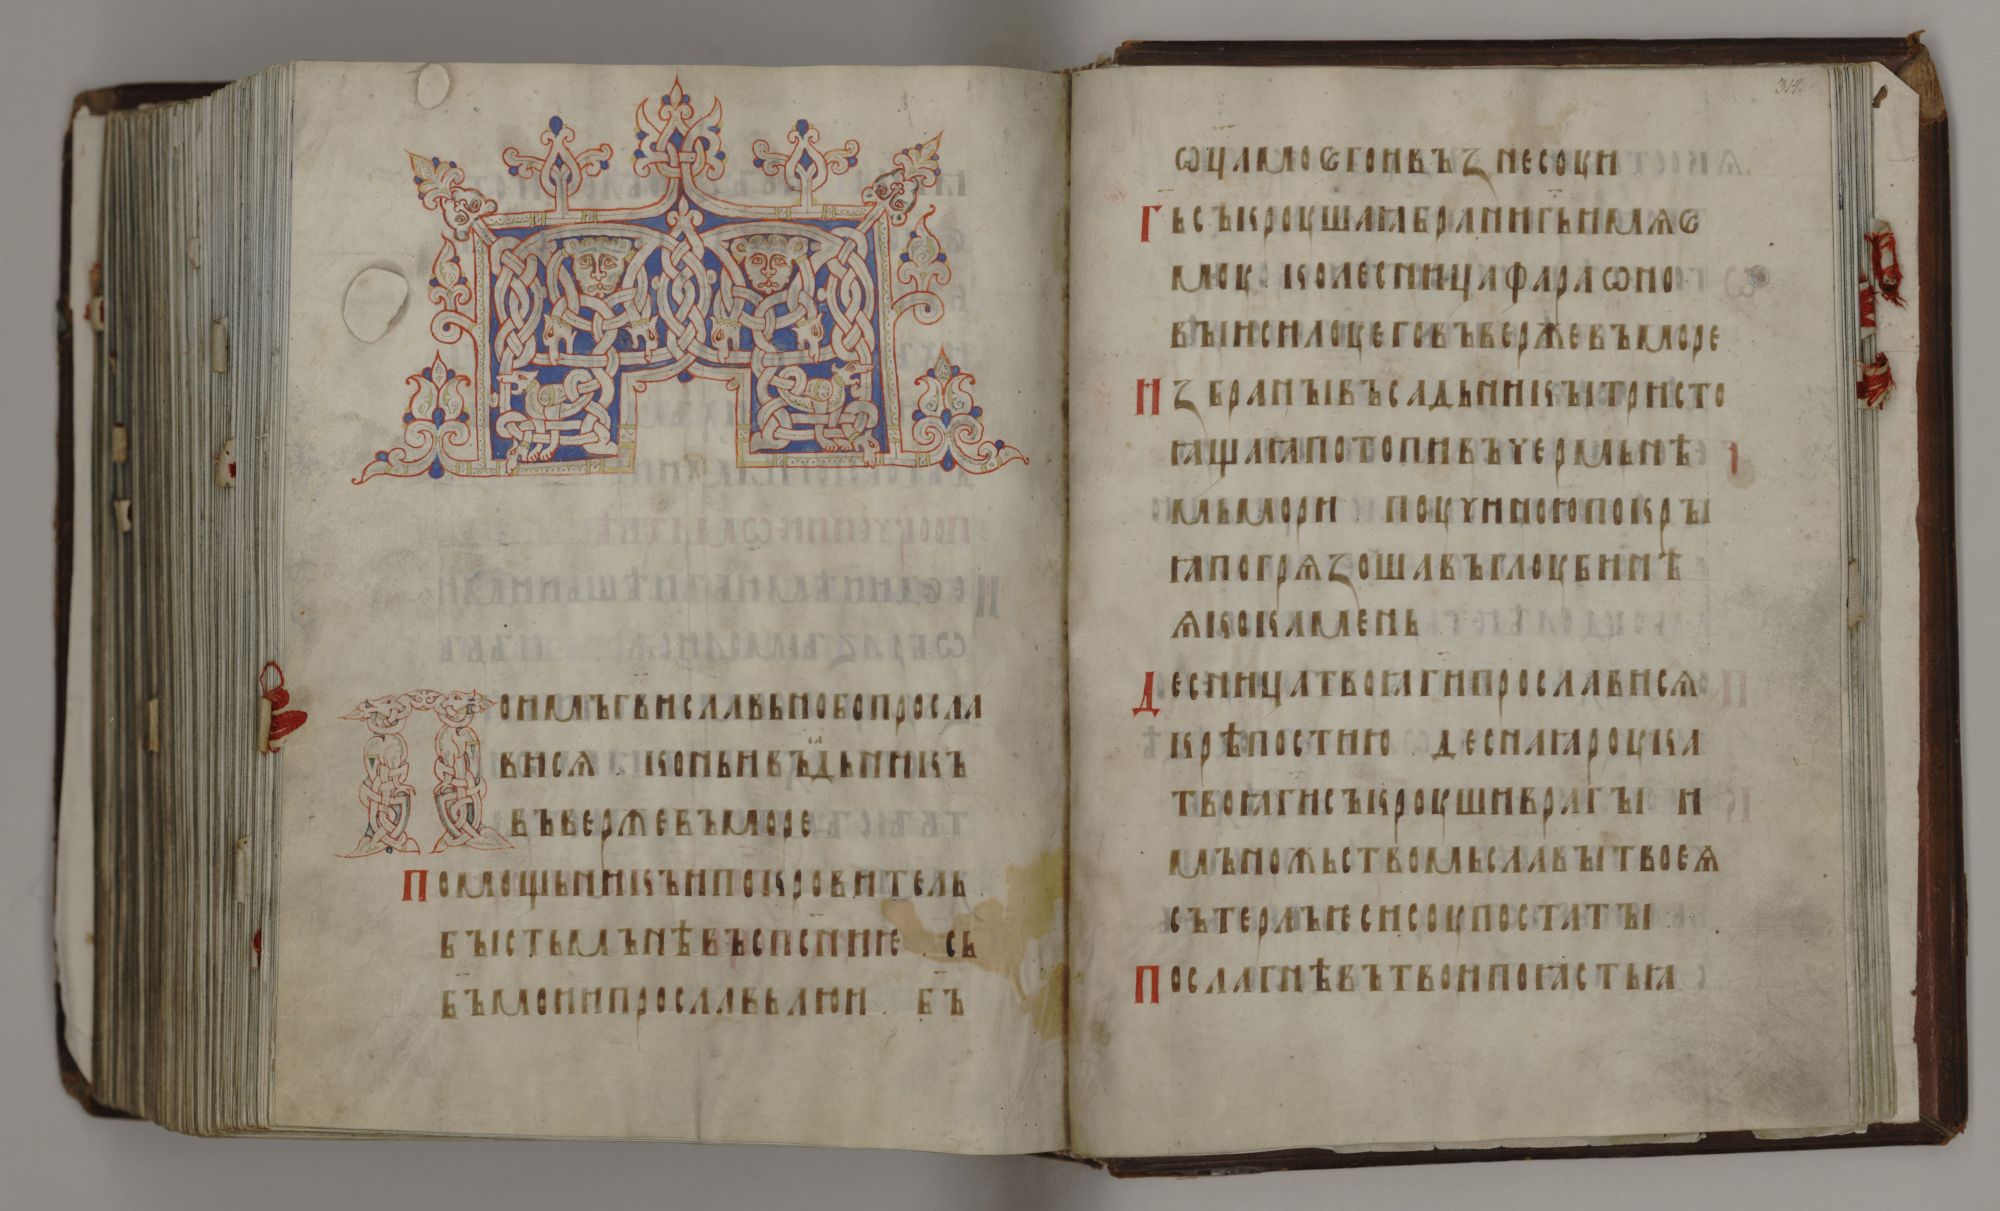 Поимъ г҃ви славьно бо просла
висѧ · конь и въсадьникъ
въверже въ море
Помощьникъ и покровитель
бысть мънѣ въ сп҃сниѥ · сь
б҃ъ мои и прославьлю и · б҃ъ
ѡц҃а моѥго и възнесоу и
Г҃ь съкроушаꙗ брани г҃ь имѧ ѥ
моу · колесница фараѡно
вы и силоу его въверже въ море
Избраныꙗ въсадьникы тристо
ꙗщаꙗ потопи въ чермьнѣ
мь мори · поучиною покры
ꙗ погрѧзоша въ глоубинѣ
ꙗко камень
Десница твоꙗ г҃и прослависѧ
крѣпостию · деснаꙗ роука
твоꙗ г҃и съкроуши врагы · и
мъножьствомь славы твоеѧ
сътерлъ ѥси соупостаты
Посла гнѣвъ твои поꙗсть ꙗ
314.